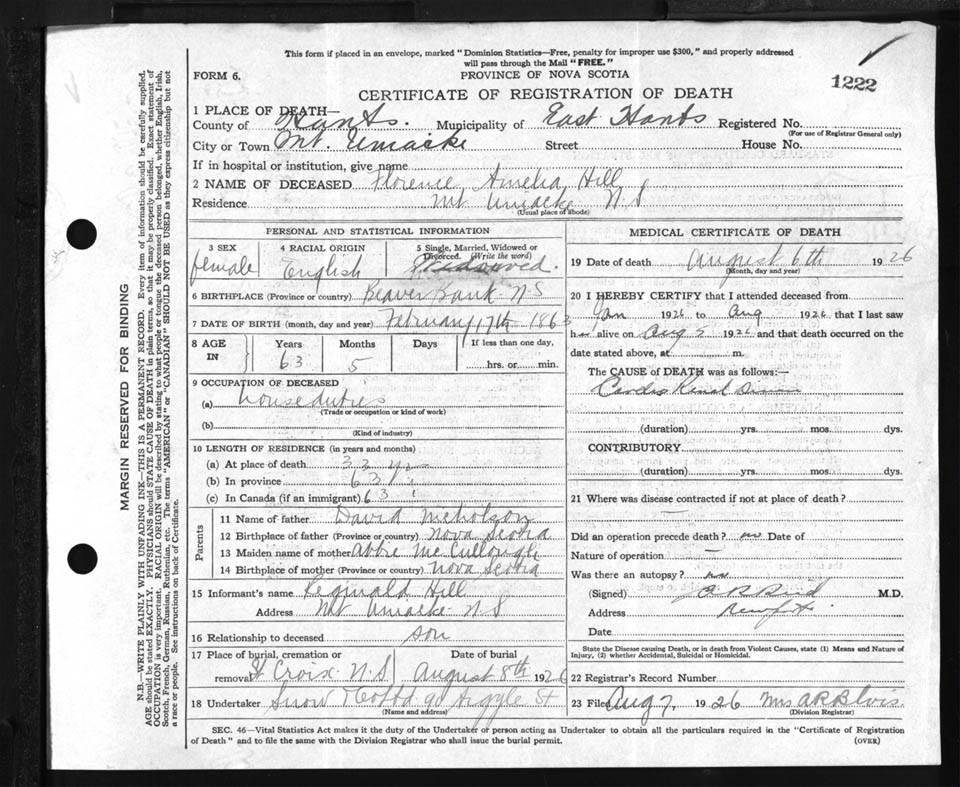 This form if placed in an envelope, marked "Dominion Statistics—Free, penalty for improper use $300," and properly addressed
will pass through the Mail "FREE."
FORM 6.
PROVINCE OF NOVA SCOTIA
1222
CERTIFICATE OF REGISTRATION OF DEATH
1 PLACE OF DEATH—
County of Hants. Municipality of East Hants Registered No.
(For use of Registrar General only)
City or Town Mt. Uniacke Street House No.
If in hospital or institution, give name
2 NAME OF DECEASED Florence Amelia Hill
Residence Mt Uniacke N.S
(Usual place of abode)
PERSONAL AND STATISTICAL INFORMATION
3 SEX female
4 RACIAL ORIGIN English
5 Single, Married, Widowed or
Divorced. (Write the word)
Widowed.
6 BIRTHPLACE (Province or country) Beaver Bank N S
7 DATE OF BIRTH (month, day and year) February 17th 1863
8 AGE IN Years Months Days If less than one day,
63 5 hrs. or min.
9 OCCUPATION OF DECEASED
(a) house duties
(Trade or occupation or kind of work)
(b)
(Kind of industry)
10 LENGTH OF RESIDENCE (in years and months)
(a) At place of death 33 yrs
(b) In province 63 "
(c) In Canada (if an immigrant) 63 "
Parents
11 Name of father David Nicholson
12 Birthplace of father (Province or country) Nova Scotia
13 Maiden name of mother Abbie McCullough
14 Birthplace of mother (Province or country) Nova Scotia
15 Informant's name Reginald Hill
Address Mt Uniacke N.S
16 Relationship to deceased son
17 Place of burial, cremation or removal Date of burial
St Croix N.S August 8th 1926
18 Undertaker Snow 90 Argyle St
(Name and address)
MEDICAL CERTIFICATE OF DEATH
19 Date of death August 6th 1926
(Month, day and year)
20 I HEREBY CERTIFY that I attended deceased from
Jan 1926 to Aug 1926 that I last saw
her alive on Aug 5 1926 and that death occurred on the
date stated above, at m.
The CAUSE of DEATH was as follows:—
Cardio Renal Disease
(duration) yrs. mos. dys.
CONTRIBUTORY
(duration) yrs. mos. dys.
21 Where was disease contracted if not at place of death?
—
Did an operation precede death? no Date of
Nature of operation —
Was there an autopsy? no
(Signed) Reid M.D.
Address
Date
State the Disease causing Death, or in death from Violent Causes, state (1) Means and Nature of
Injury, (2) whether Accidental, Suicidal or Homicidal.
22 Registrar's Record Number
23 Filed Aug 7, 1926 Mrs
(Division Registrar)
SEC. 46—Vital Statistics Act makes it the duty of the Undertaker or person acting as Undertaker to obtain all the particulars required in the "Certificate of Registration
of Death" and to file the same with the Division Registrar who shall issue the burial permit.
(OVER)
MARGIN RESERVED FOR BINDING
N.B.—WRITE PLAINLY WITH UNFADING INK—THIS IS A PERMANENT RECORD. Every item of information should be carefully supplied.
AGE should be stated EXACTLY. PHYSICIANS should STATE CAUSE OF DEATH in plain terms, so that it may be properly classified. Exact statement of
OCCUPATION is very important. RACIAL ORIGIN will be described by stating to what people or tongue the deceased person belonged, whether English, Irish,
Scotch, French, German, Russian, Ruthenian, etc. The terms "AMERICAN" or "CANADIAN" SHOULD NOT BE USED as they express citizenship but not
a race or people. See instructions on back of Certificate.